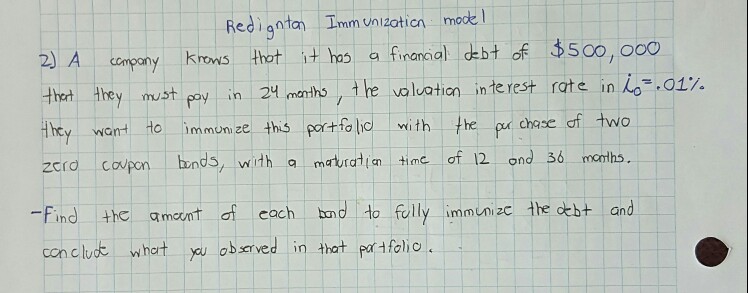 Redigntan Immunization model
2) A company knows that it has a financial debt of $500,000
that they must pay in 24 months, the valuation interest rate in i₀=.01%
they want to immunize this portfolio with the purchase of two
zero coupon bonds, with a maturation time of 12 and 36 months.
-Find the amount of each bond to fully immunize the debt and
conclude what you observed in that portfolio.